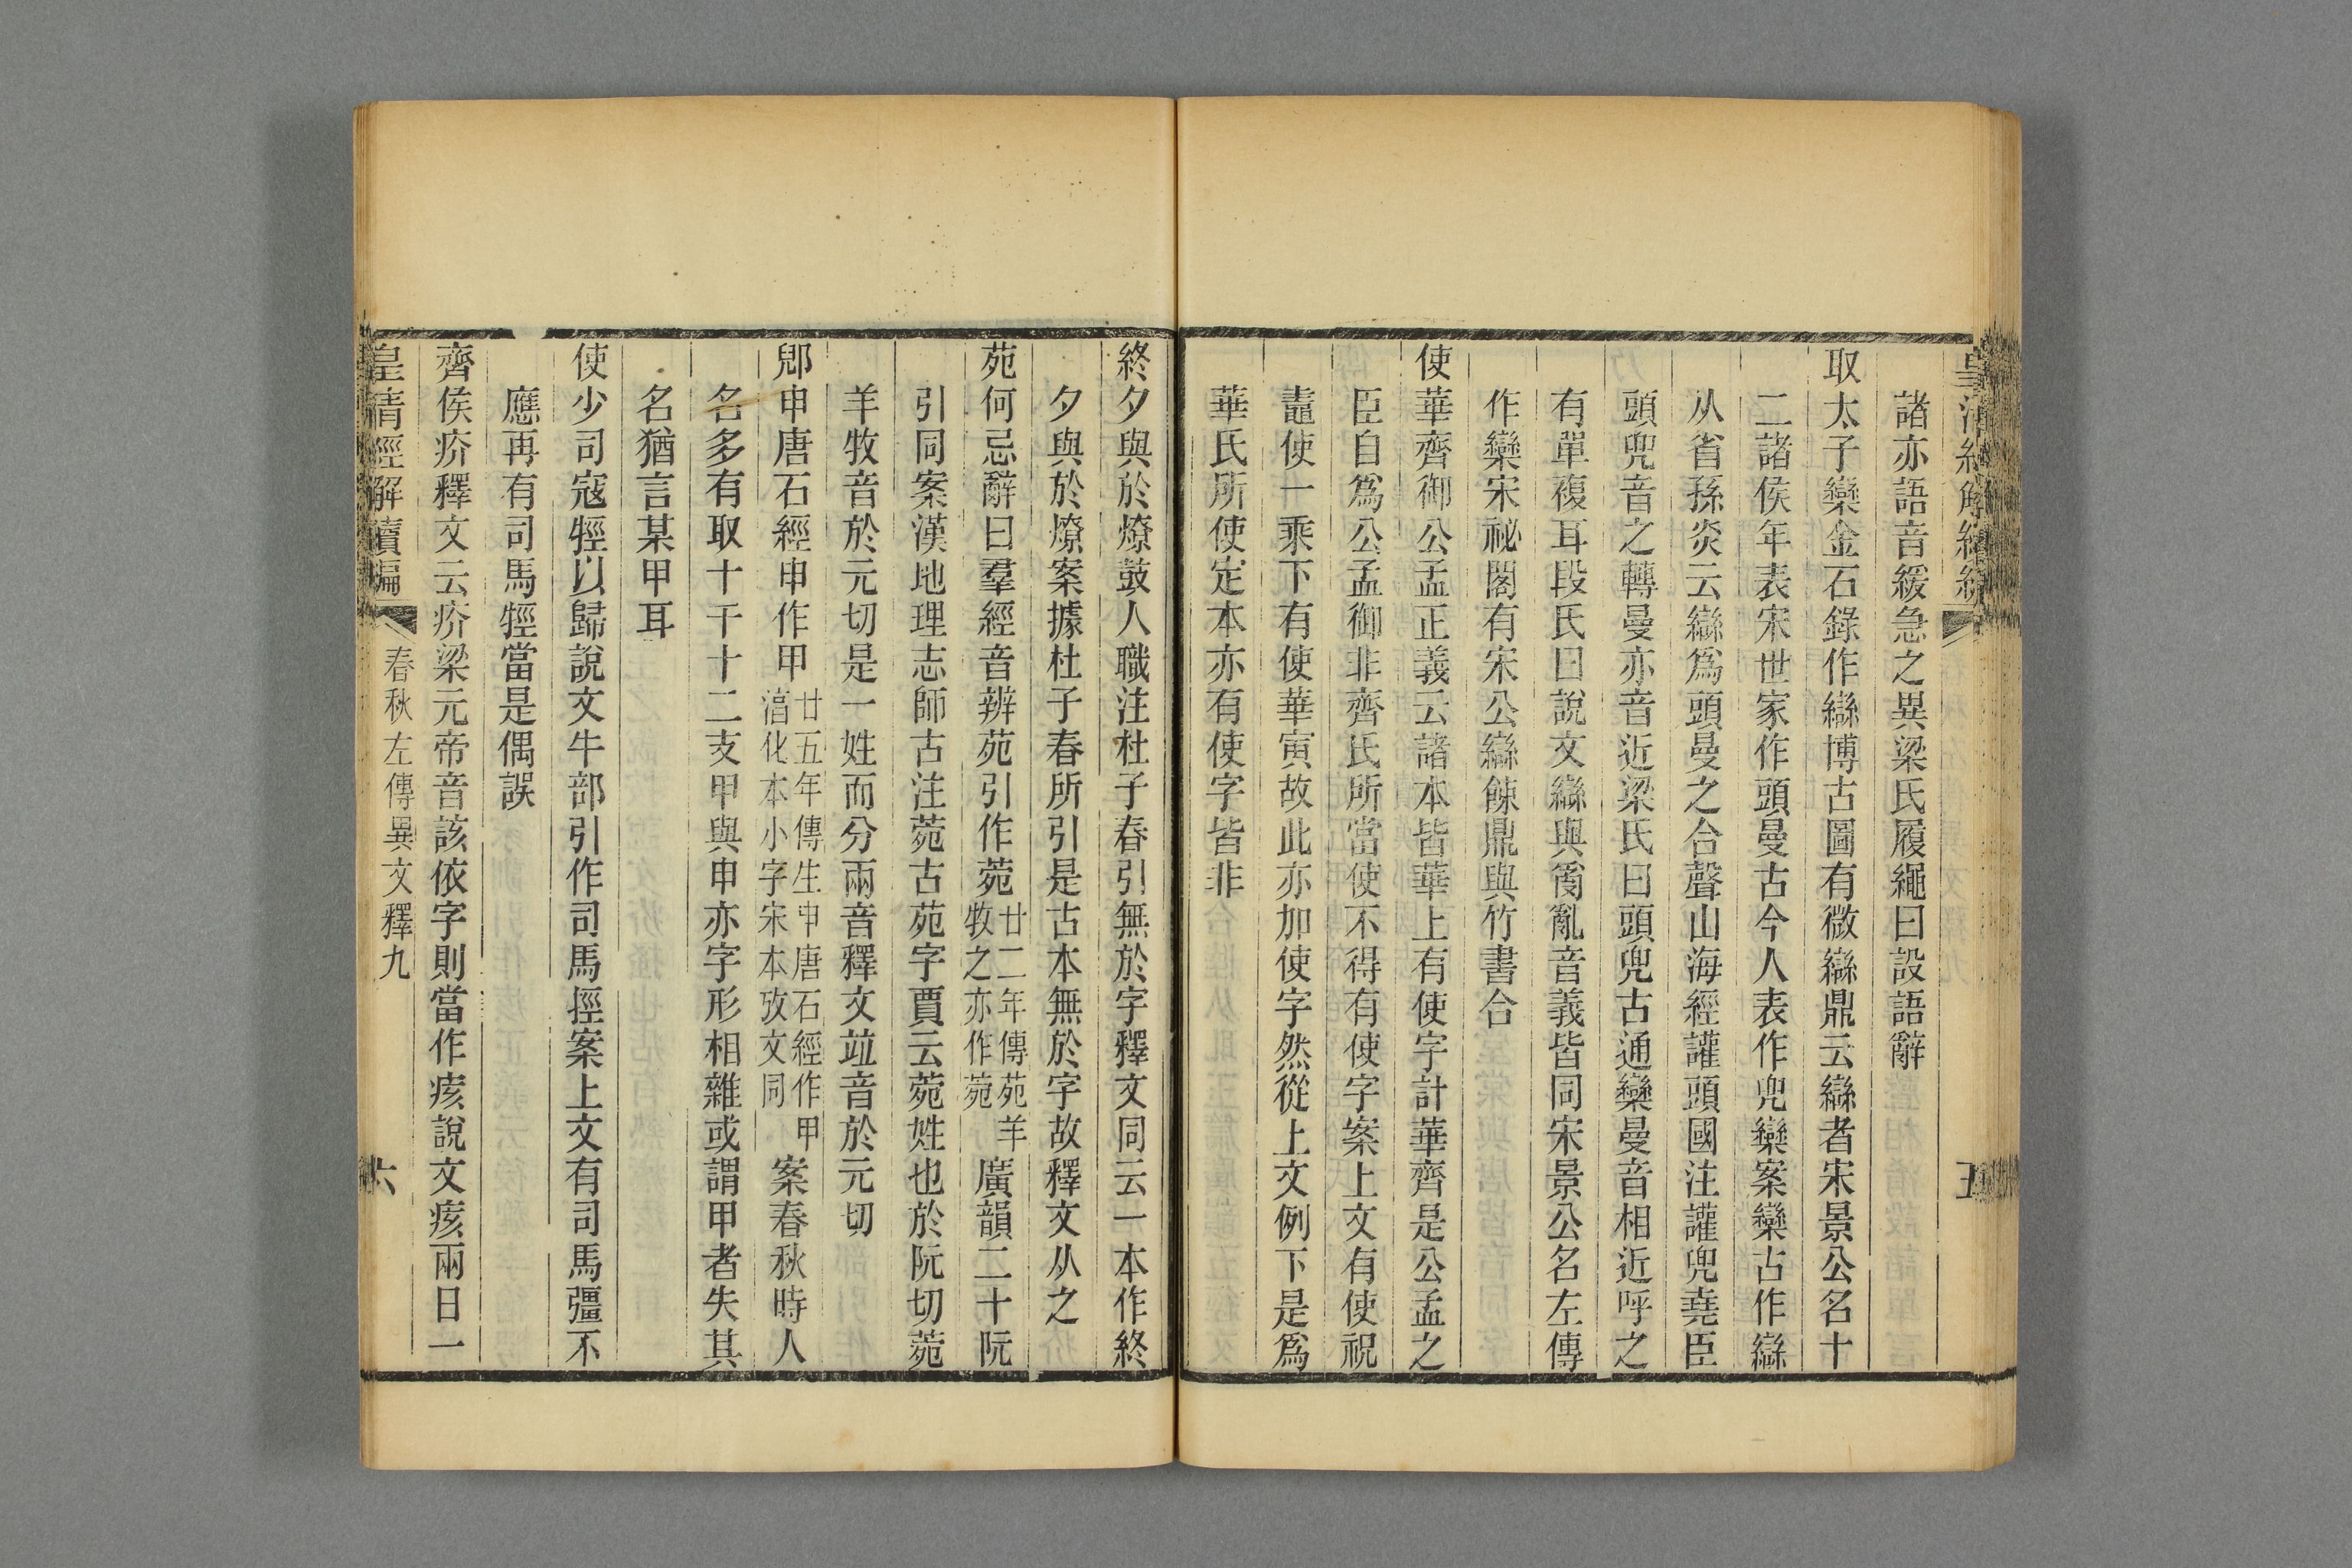 諸亦語音緩急之異梁氏履繩曰設語辭
取太子欒金石錄作䜌博古圖有微䜌鼎云䜌者宋景公名十
二諸侯年表宋世家作頭曼古今人表作兜欒案欒古作䜌
从省孫炎云䜌爲頭曼之合聲山海經讙頭國注讙兜堯臣
頭兜音之轉曼亦音近梁氏曰頭兜古通欒曼音相近呼之
有單複耳段氏曰說文䜌與𤔔亂音義皆同宋景公名左傳
作欒宋祕閣有宋公䜌餗鼎與竹書合
使華齊御公孟正義云諸本皆華上有使字計華齊是公孟之
臣自爲公孟御非齊氏所當使不得有使字案上文有使祝
鼃使一乘下有使華寅故此亦加使字然從上文例下是爲
華氏所使定本亦有使字皆非
終夕與於燎鼓人職注杜子春引無於字釋文同云一本作終
夕與於燎案據杜子春所引是古本無於字故釋文从之
苑何忌辭曰羣經音辨苑引作菀廿二年傳苑羊牧之亦作菀廣韻二十阮
引同案漢地理志師古注菀古苑字賈云菀姓也於阮切菀
羊牧音於元切是一姓而分兩音釋文竝音於元切
郹申唐石經申作甲廿五年傳生申唐石經作甲湻化本小字宋本攷文同案春秋時人
名多有取十干十二支甲與申亦字形相雜或謂甲者失其
名猶言某甲耳
使少司寇牼以歸說文牛部引作司馬牼案上文有司馬彊不
應再有司馬牼當是偶誤
齊侯疥釋文云疥梁元帝音該依字則當作痎說文痎兩日一
皇清經解續編 春秋左傳異文釋九 六